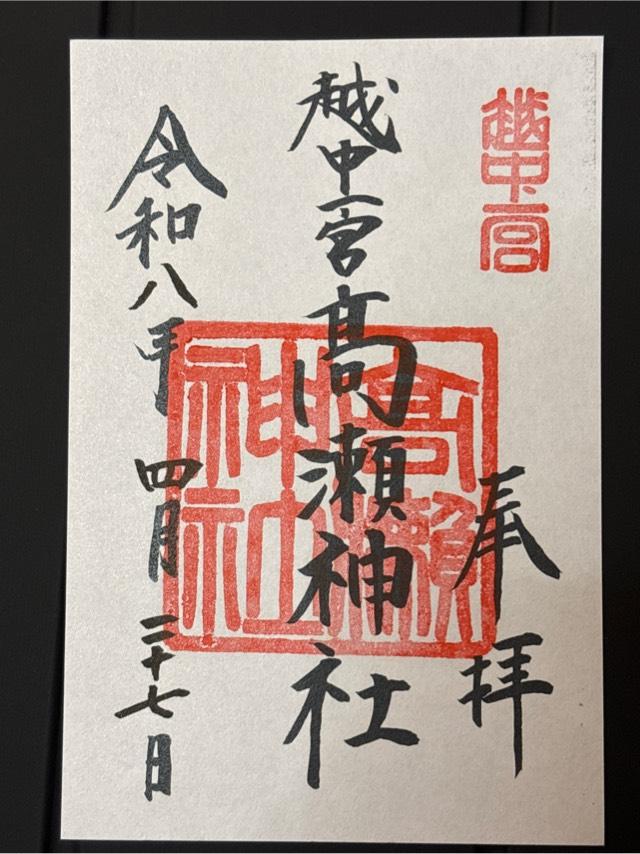 越中一宮
奉拝
越中一宮 髙瀬神社
高瀬神社
令和八年 四月 二十七日